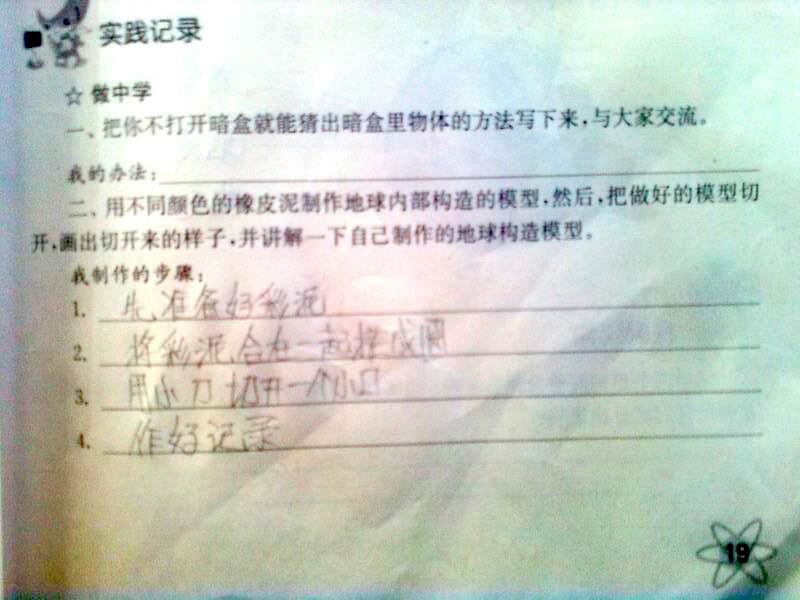 实践记录
☆ 做中学
一、把你不打开暗盒就能猜出暗盒里物体的方法写下来,与大家交流。
我的办法:
二、用不同颜色的橡皮泥制作地球内部构造的模型,然后,把做好的模型切
开,画出切开来的样子,并讲解一下自己制作的地球构造模型。
我制作的步骤:
1. 先准备好彩泥
2. 将彩泥合在一起搓成圆
3. 用小刀切开一个小口
4. 作好记录
19